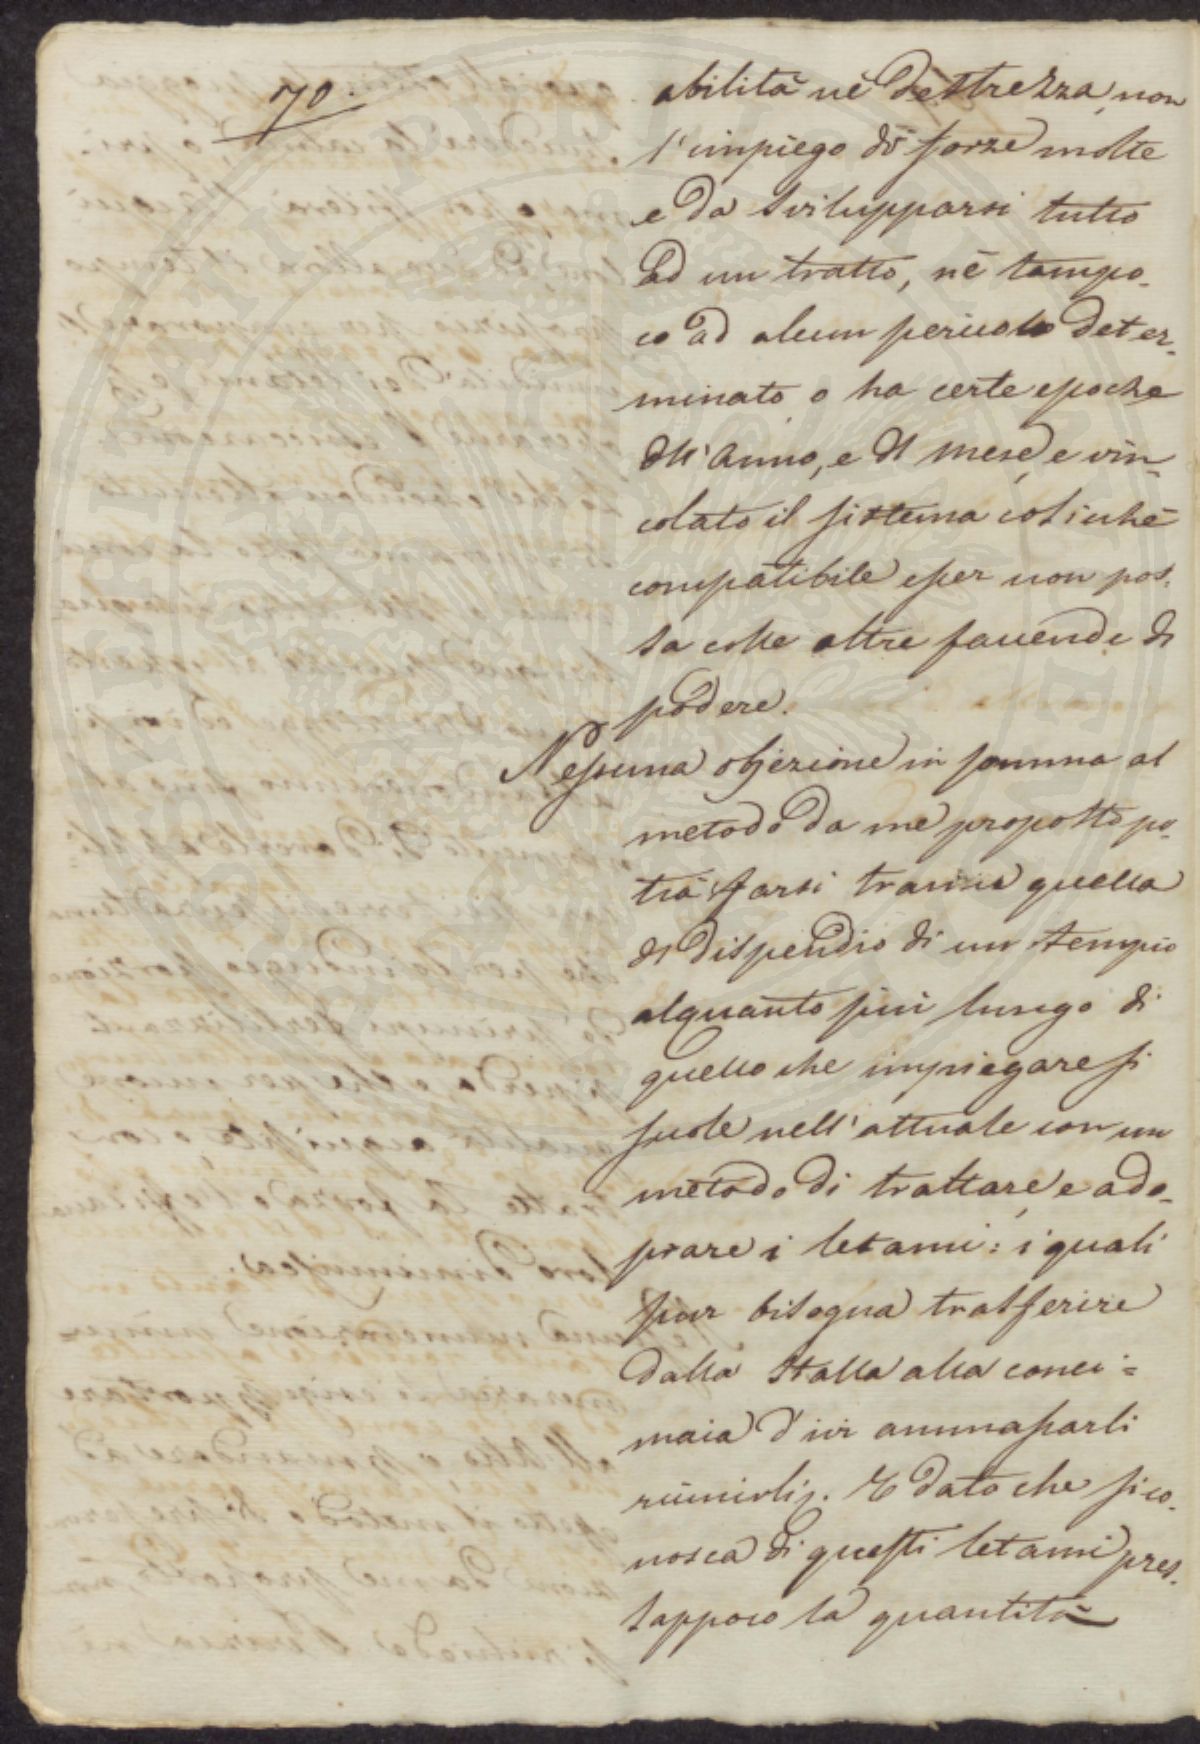 70.
abilità nè destrezza, non
l'impiego di forze molte
e da svilupparsi tutto
ad un tratto, nè tampo-
co ad alcun periodo deter-
minato o ha certe epoche
dll'anno, e dl mese, e vin-
colato il sistema cosicchè
compatibile esser non pos-
sa colle altre faccende di
podere.
Nessuna objezione in somma al
metodo da me proposto po-
trà farsi tranne quella
dl dispendio di un tempo
alquanto più lungo di
quello che impiegare si
suole nell'attuale con un
metodo di trattare, e ado-
prare i letami: i quali
pur bisogna trasferire
dalla stalla alla conci=
maia d'ivi ammassarli
riunirli. E dato che si co-
nosca di questi letami pres-
sappoco la quantità